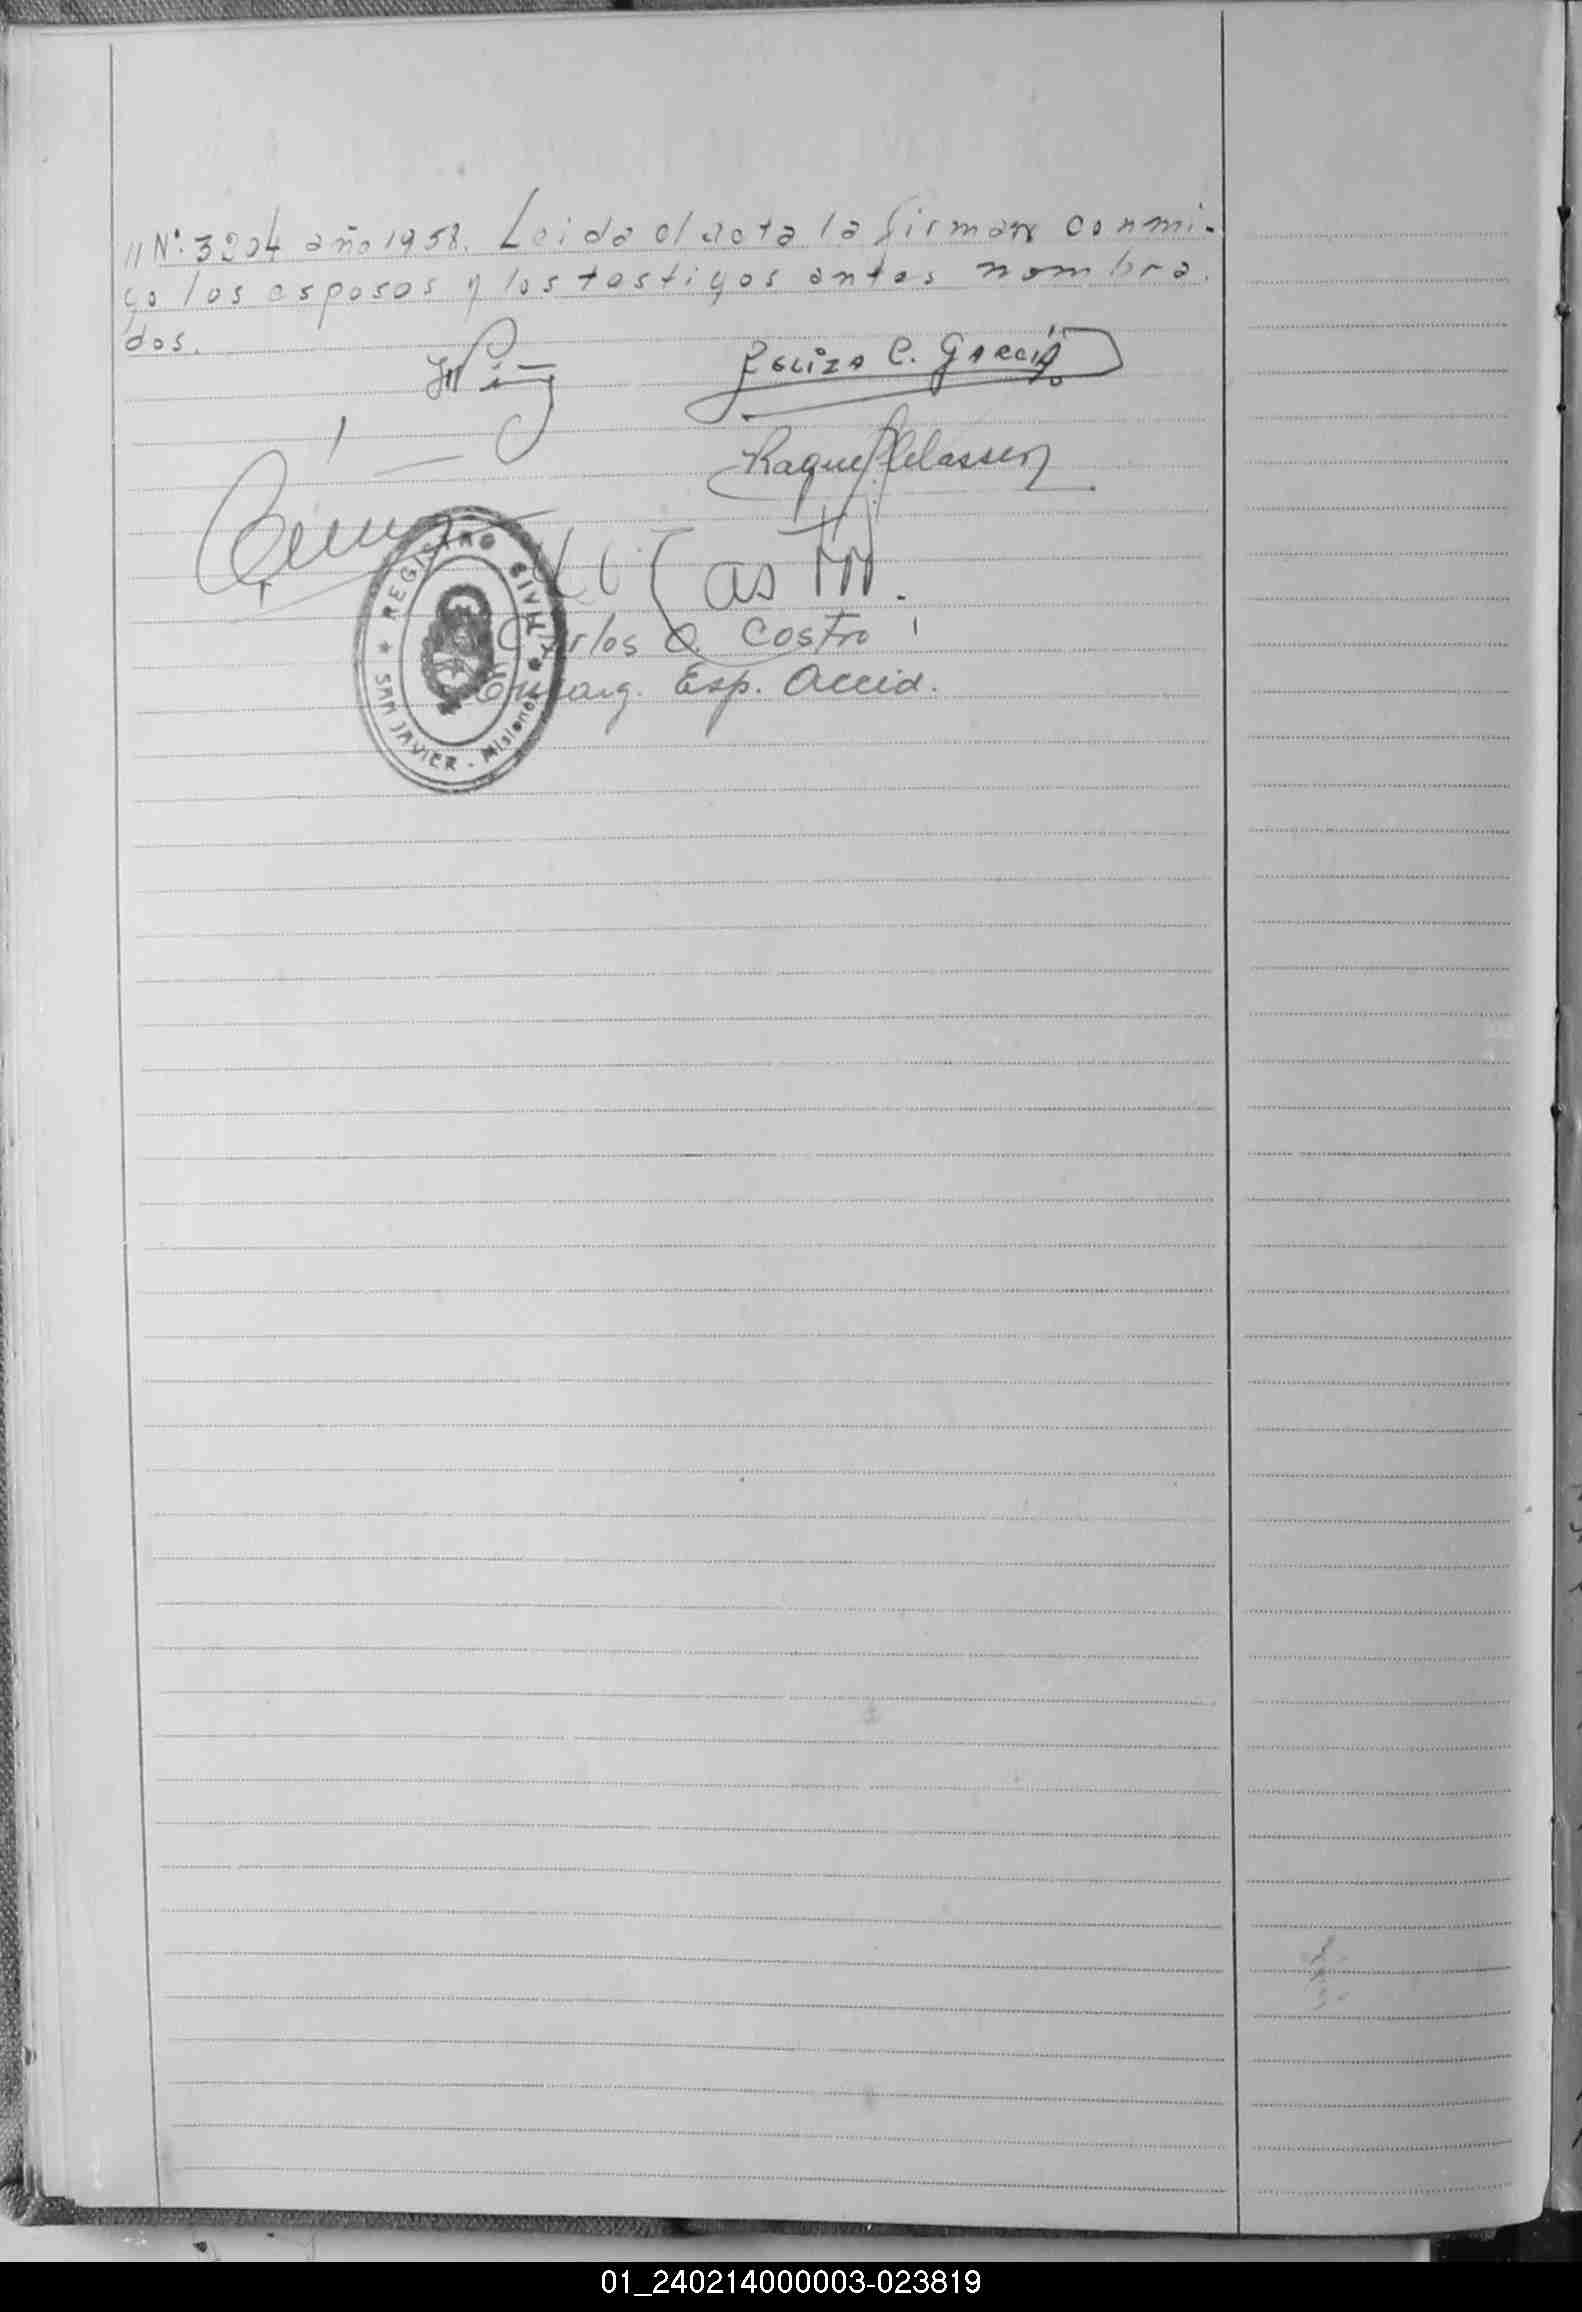 // Nº: 3204 año 1958. Leida el acta la firman conmi-
go los esposos y los testigos antes nombra-
dos.
Feliza C. García
Raquel
Castro.
Carlos A. Castro
Encarg. Esp. Accid.
REGISTRO CIVIL
SAN JAVIER - Misiones
01_240214000003-023819